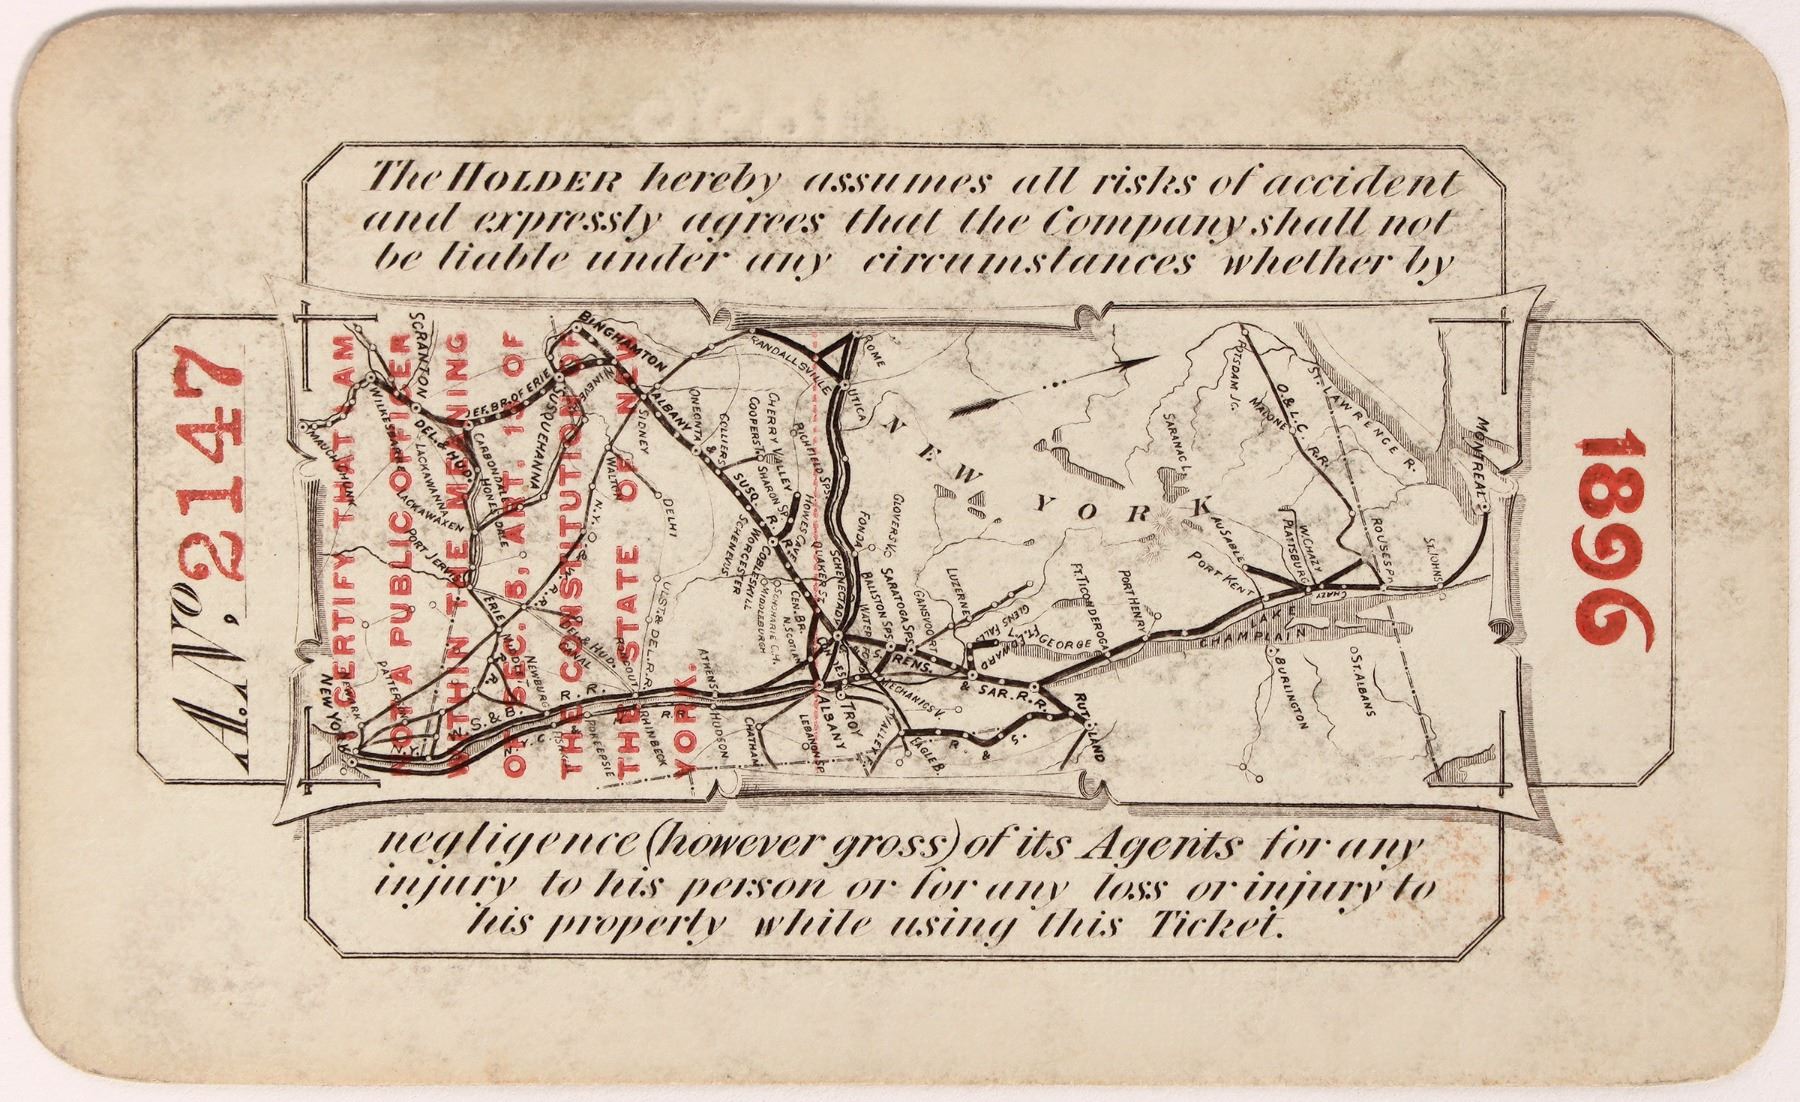 The HOLDER hereby assumes all risks of accident
and expressly agrees that the Company shall not
be liable under any circumstances whether by
negligence (however gross) of its Agents for any
injury to his person or for any loss or injury to
his property while using this Ticket.
A.No. 2147
1896
I CERTIFY THAT I AM
NOT A PUBLIC OFFICER
WITHIN THE MEANING
OF SEC. 5, ART. 13 OF
THE CONSTITUTION OF
THE STATE OF NEW
YORK.
NEW YORK
SCRANTON
WILKESBARRE
MAUCH CHUNK
DEL. & HUD.
JEF. BR. OF ERIE
CARBONDALE
LACKAWANNA
LACKAWAXEN
HONESDALE
PORT JERVIS
ERIE
SUSQUEHANNA
NINEVEH
BINGHAMTON
SIDNEY
WALTON
DELHI
ALBANY & SUSQ. R. R.
ONEONTA
COLLIERS
COOPERST'N
CHERRY VALLEY
SHARON SP.
RICHFIELD SPS.
HOWES CAVE
COBLESKILL
WORCESTER
SCHENEVUS
MIDDLEBURGH
SCHOHARIE C.H.
CEN. BR.
N. SCOTLAND
QUAKER ST.
SCHENECTADY
RANDALLSVILLE
ROME
UTICA
FONDA
GLOVERSV.
BALLSTON SPS.
SARATOGA SPS.
GANSVOORT
LUZERNE
GLENS FALLS
FT. EDWARD
L. GEORGE
FT. TICONDEROGA
PORT HENRY
PORT KENT
AUSABLE
PLATTSBURG
W. CHAZY
CHAZY
ROUSES PT.
ST. JOHNS
MONTREAL
ST. LAWRENCE R.
O. & L. C. R.R.
MALONE
POTSDAM JC.
SARANAC L.
LAKE
CHAMPLAIN
BURLINGTON
ST. ALBANS
RUTLAND
RENS. & SAR. R. R.
MECHANICSV.
EAGLE B.
TROY
ALBANY
LEBANON SP.
CHATHAM
HUDSON
ATHENS
RHINBECK
RONDOUT
POKEEPSIE
NEWBURG
PATTERSON
NEWARK
NEW YORK
ULST. & DEL. R.R.